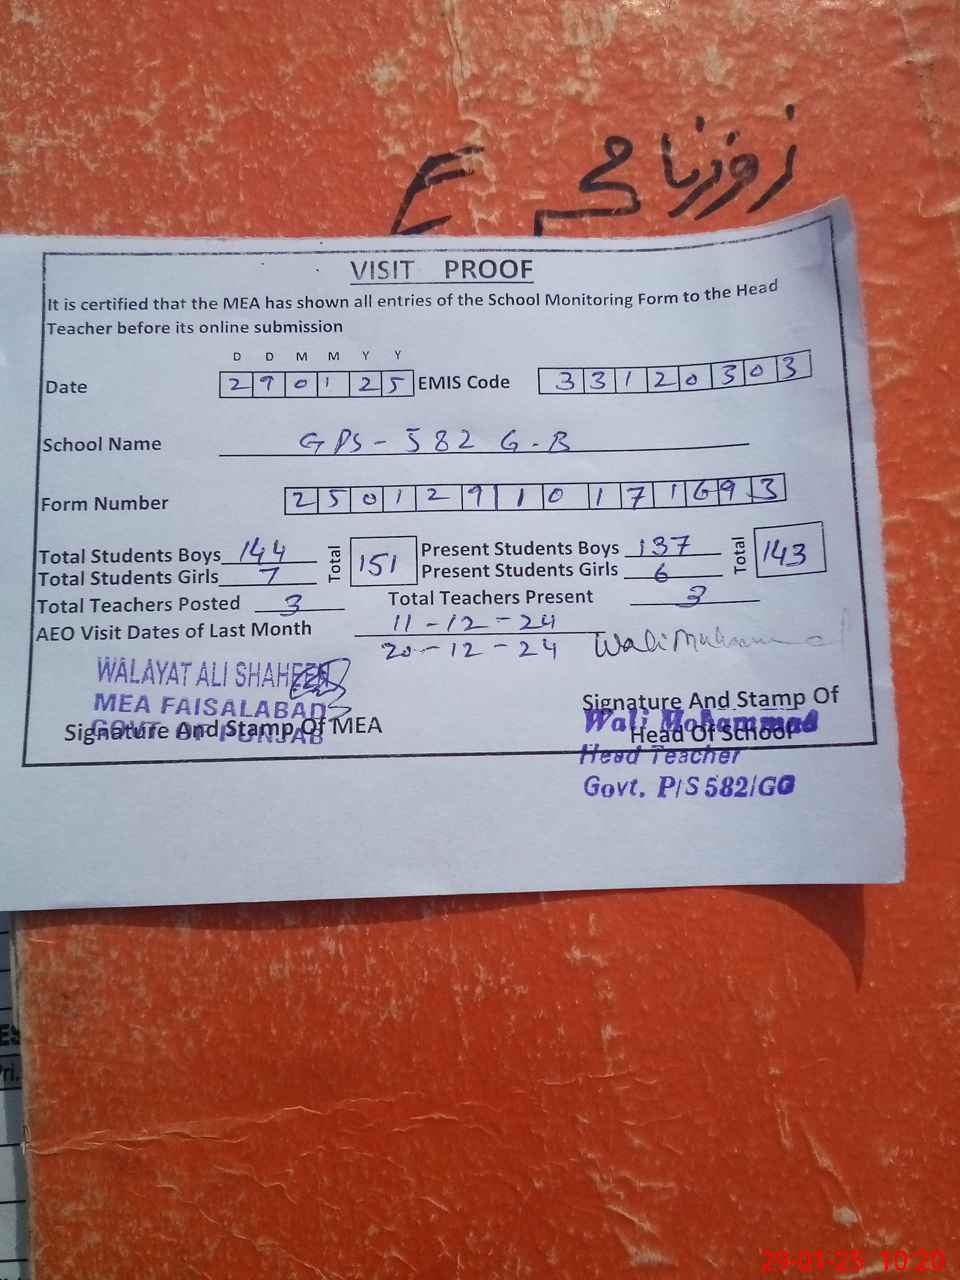 روزنامچے
VISIT PROOF
It is certified that the MEA has shown all entries of the School Monitoring Form to the Head
Teacher before its online submission
D D M M Y Y
Date 290125 EMIS Code 33120303
School Name GPS-582 G-B
Form Number 25012910171693
Total Students Boys 144 Total 151 Present Students Boys 137 Total 143
Total Students Girls 7 Present Students Girls 6
Total Teachers Posted 3 Total Teachers Present 3
AEO Visit Dates of Last Month 11-12-24
20-12-24 Wali Muhammad
WALAYAT ALI SHAHEEN
MEA FAISALABAD
GOVT OF PUNJAB
Signature And Stamp Of MEA
Signature And Stamp Of
Head Of School
Wali Mohammad
Head Teacher
Govt. P/S 582/GG
29-01-25 10:20